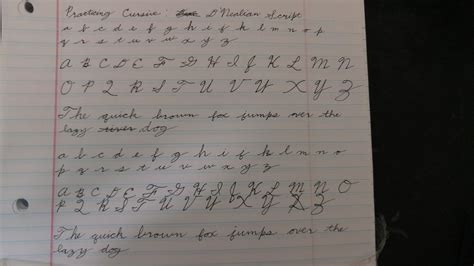 Practicing Cursive: D'Nealian Script
a b c d e f g h i j k l m n o
p q r s t u v w x y z
A B C D E F G H I J K L M N
O P Q R S T U V W X Y Z
The quick brown fox jumps over the
lazy river dog
a b c d e f g h i j k l m n o
p q r s t u v w x y z
A B C D E F G H I J K L M N O
P Q R S T U V W X Y Z
The quick brown fox jumps over the
lazy dog